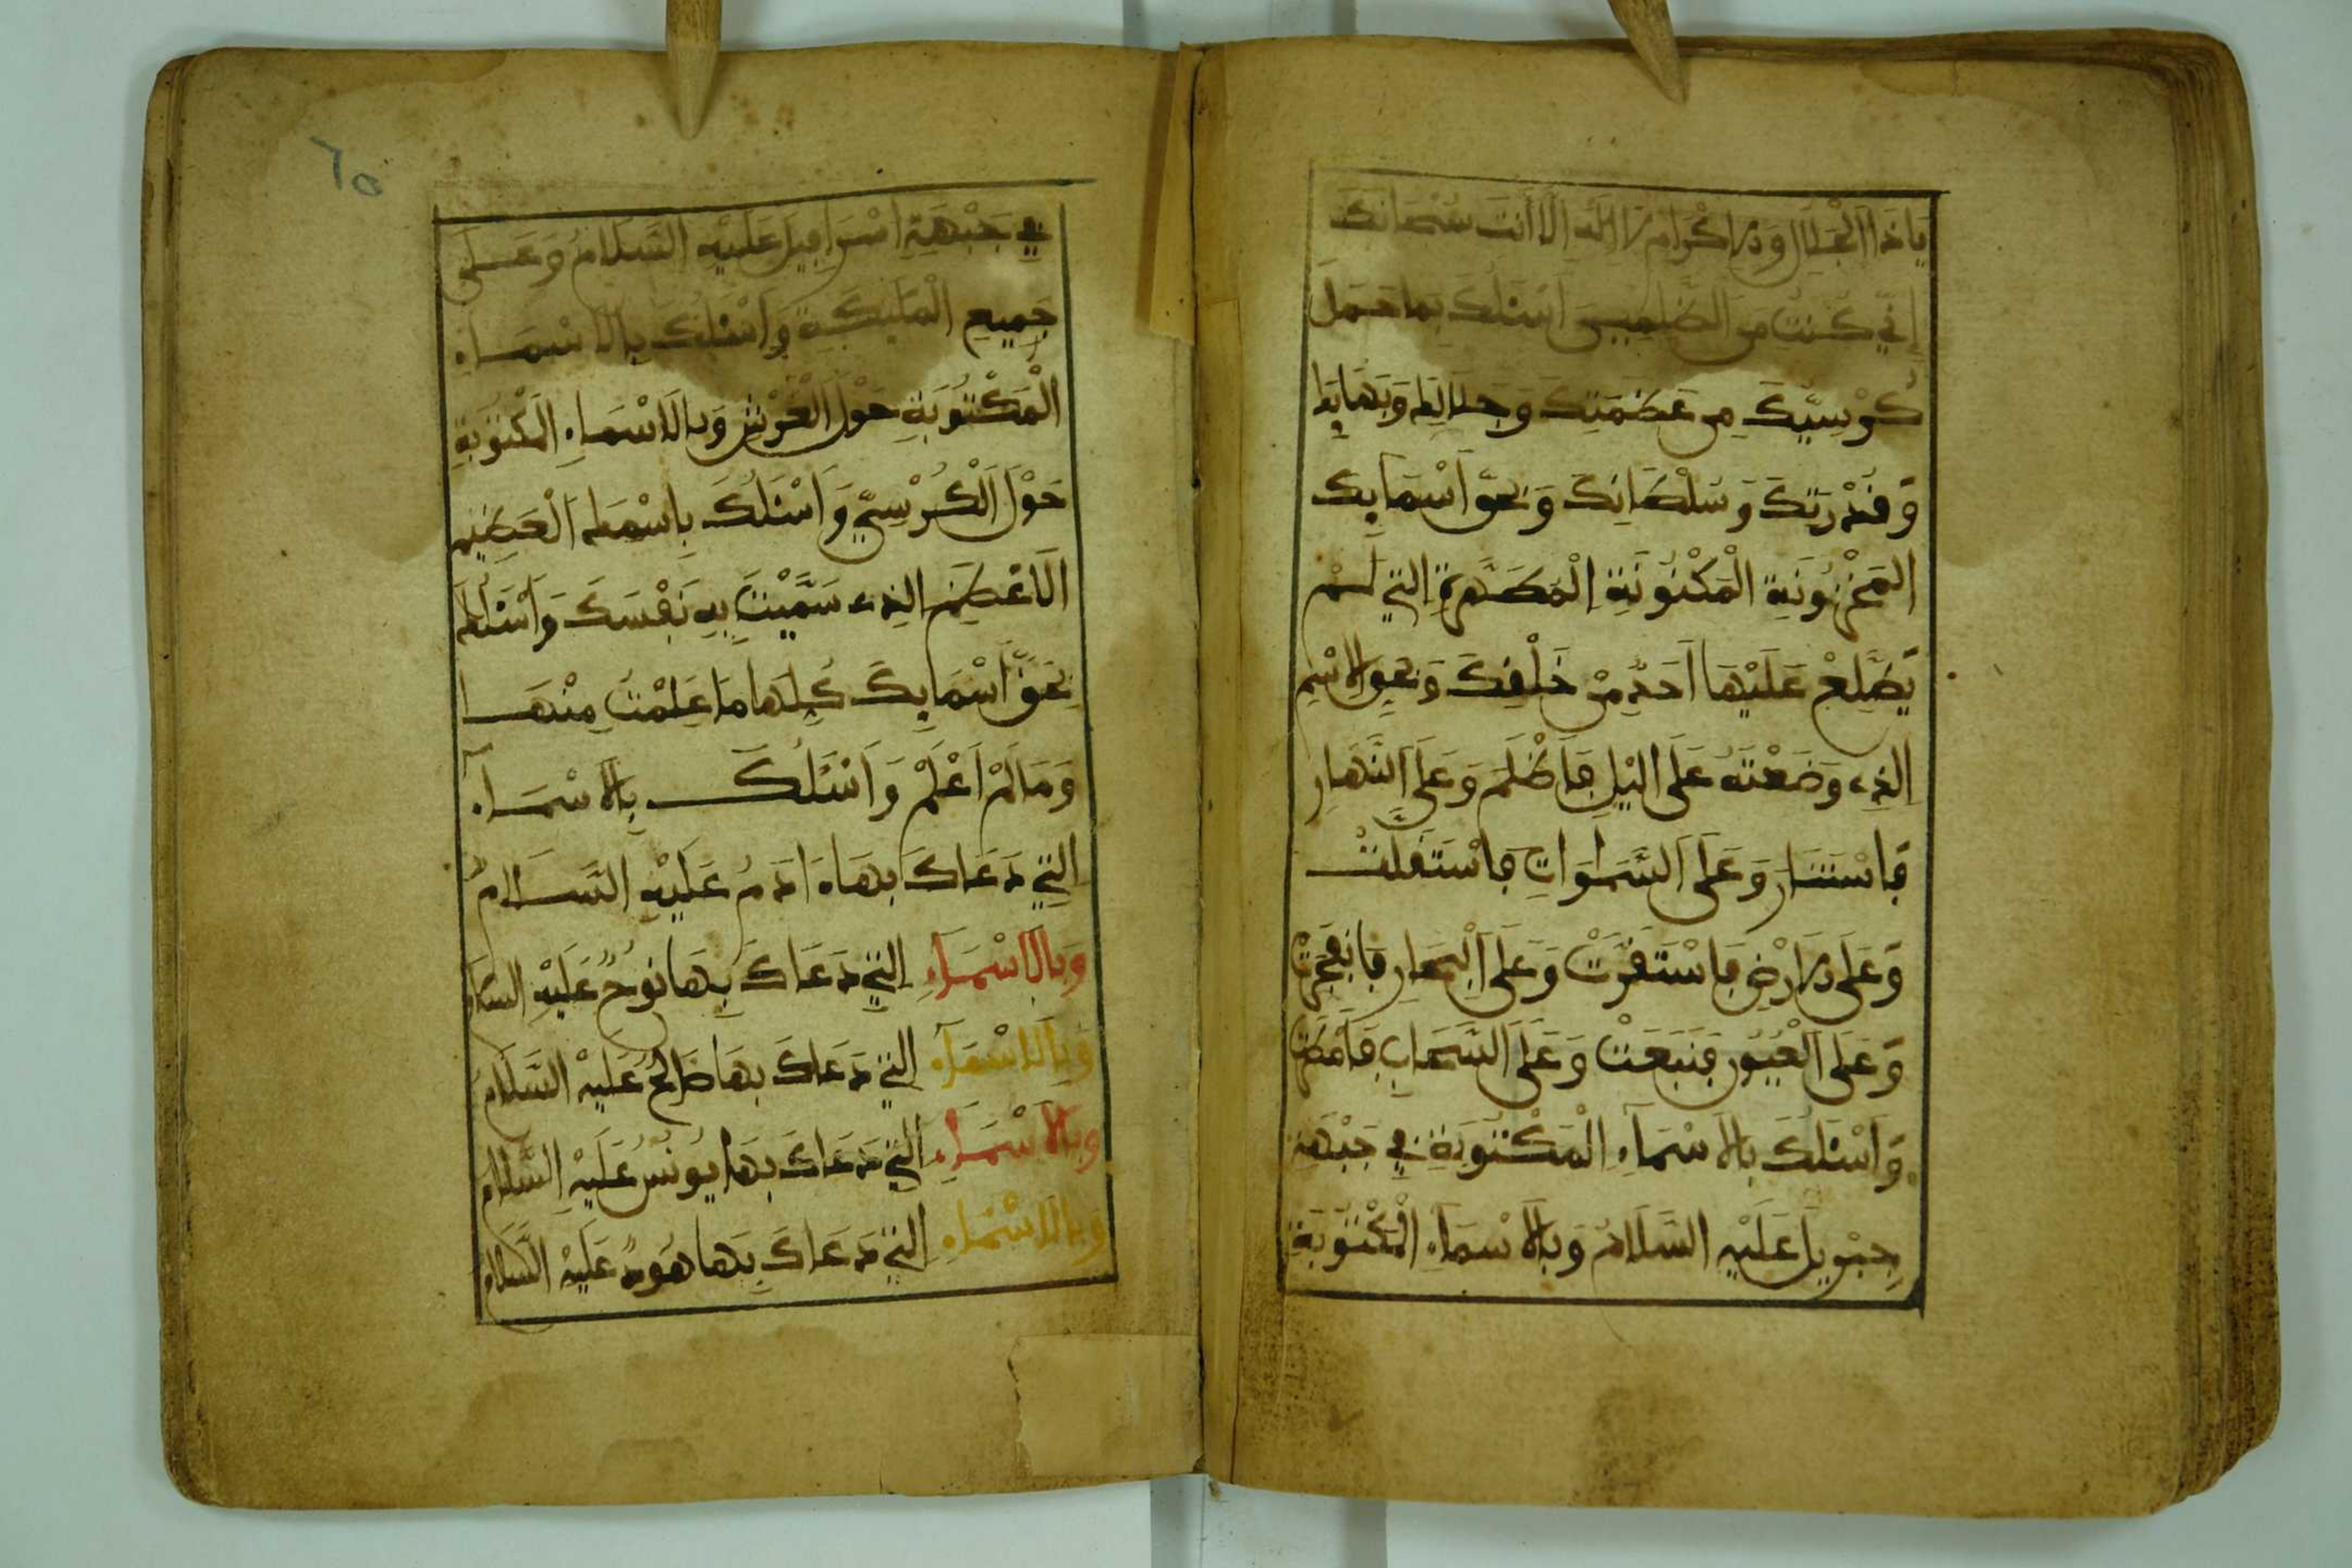 يَا ذَا الْجَلَالِ وَالْاِكْرَامِ لَا اِلَهَ اِلَّا أَنْتَ سُبْحَانَكَ
اِنِّي كُنْتُ مِنَ الظَّلِمِينَ أَسْئَلُكَ بِمَا حَمَلَ
كُرْسِيُّكَ مِن عَظَمَتِكَ وَجَلَالِكَ وَبَهَايِكَ
وَقُدْرَتِكَ وَسُلْطَانِكَ وَبِحَقِّ أَسْمَايِكَ
الْمَخْزُونَةِ الْمَكْنُونَةِ الْمُطَهَّرَةِ الَّتِي لَمْ
يَطَّلِعْ عَلَيْهَا أَحَدٌ مِنْ خَلْقِكَ وَبِحَقِّ الْاِسْمِ
الَّذِي وَضَعْتَهُ عَلَى الَّيْلِ فَأَظْلَمَ وَعَلَى النَّهَارِ
فَاسْتَنَارَ وَعَلَى السَّمَوَاتِ فَاسْتَقَلَّتْ
وَعَلَى الْاَرْضِ فَاسْتَقَرَّتْ وَعَلَى الْبِحَارِ فَانْفَجَرَتْ
وَعَلَى الْعُيُونِ فَنَبَعَتْ وَعَلَى السَّحَابِ فَأَمْطَرَتْ
وَأَسْئَلُكَ بِالْاَسْمَآءِ الْمَكْتُوبَةِ فِي جَبْهَةِ
جِبْرِيلَ عَلَيْهِ السَّلَامُ وَبِالْاَسْمَآءِ الْمَكْتُوبَةِ
٦٥
فِي جَبْهَةِ اِسْرَافِيلَ عَلَيْهِ السَّلَامُ وَعَلَى
جَمِيعِ الْمَلَئِكَةِ وَأَسْئَلُكَ بِالْاَسْمَاءِ
الْمَكْتُوبَةِ حَوْلَ الْعَرْشِ وَبِالْاَسْمَاءِ الْمَكْتُوبَةِ
حَوْلَ الْكُرْسِيِّ وَأَسْئَلُكَ بِاسْمِكَ الْعَظِيمِ
الْاَعْظَمِ الَّذِي سَمَّيْتَ بِهِ نَفْسَكَ وَأَسْئَلُكَ
بِحَقِّ أَسْمَايِكَ كُلِّهَا مَا عَلِمْتُ مِنْهَا
وَمَا لَمْ أَعْلَمْ وَأَسْئَلُكَ بِالْاَسْمَآءِ
الَّتِي دَعَاكَ بِهَا ءَادَمُ عَلَيْهِ السَّلَامُ
وَبِالْاَسْمَآءِ الَّتِي دَعَاكَ بِهَا نُوحٌ عَلَيْهِ السَّلَامُ
وَبِالْاَسْمَآءِ الَّتِي دَعَاكَ بِهَا صَالِحٌ عَلَيْهِ السَّلَامُ
وَبِالْاَسْمَآءِ الَّتِي دَعَاكَ بِهَا يُونُسُ عَلَيْهِ السَّلَامُ
وَبِالْاَسْمَآءِ الَّتِي دَعَاكَ بِهَا هُودٌ عَلَيْهِ السَّلَامُ